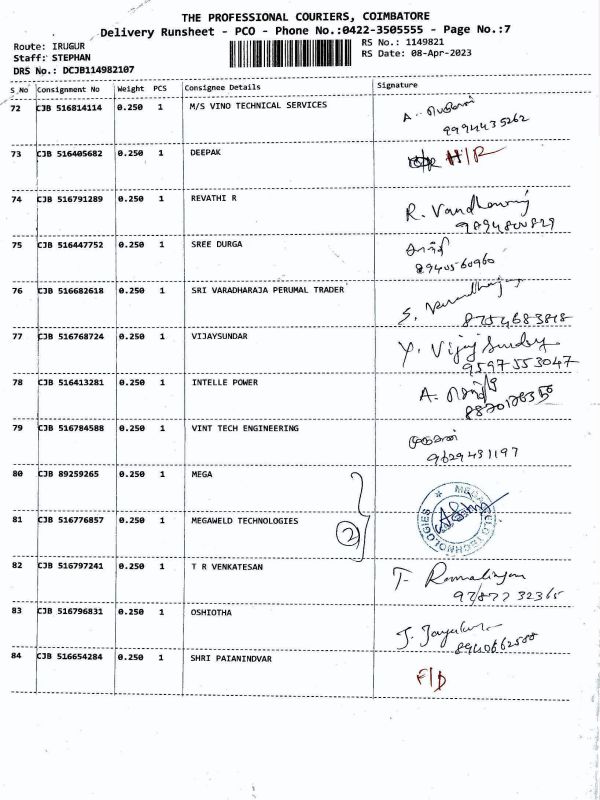 THE PROFESSIONAL COURIERS, COIMBATORE
Delivery Runsheet - PCO - Phone No.:0422-3505555 - Page No.:7
Route: IRUGUR
RS No.: 1149821
Staff: STEPHAN
RS Date: 08-Apr-2023
DRS No.: DCJB114982107
S.No Consignment No Weight PCS Consignee Details Signature
72 CJB 516814114 0.250 1 M/S VINO TECHNICAL SERVICES A.
9994435262
73 CJB 516405682 0.250 1 DEEPAK H/R
74 CJB 516791289 0.250 1 REVATHI R R.
9894800829
75 CJB 516447752 0.250 1 SREE DURGA
8940560960
76 CJB 516682618 0.250 1 SRI VARADHARAJA PERUMAL TRADER S.
8754683818
77 CJB 516768724 0.250 1 VIJAYSUNDAR Y. Vijay Sundar
9597553047
78 CJB 516413281 0.250 1 INTELLE POWER A.
79 CJB 516784588 0.250 1 VINT TECH ENGINEERING
9629431197
80 CJB 89259265 0.250 1 MEGA
81 CJB 516776857 0.250 1 MEGAWELD TECHNOLOGIES 2 MEGAWELD TECHNOLOGIES
82 CJB 516797241 0.250 1 T R VENKATESAN T. Ramalingam
9787732365
83 CJB 516796831 0.250 1 OSHIOTHA J. Jayakumar
8940662588
84 CJB 516654284 0.250 1 SHRI PAIANINDVAR F/D